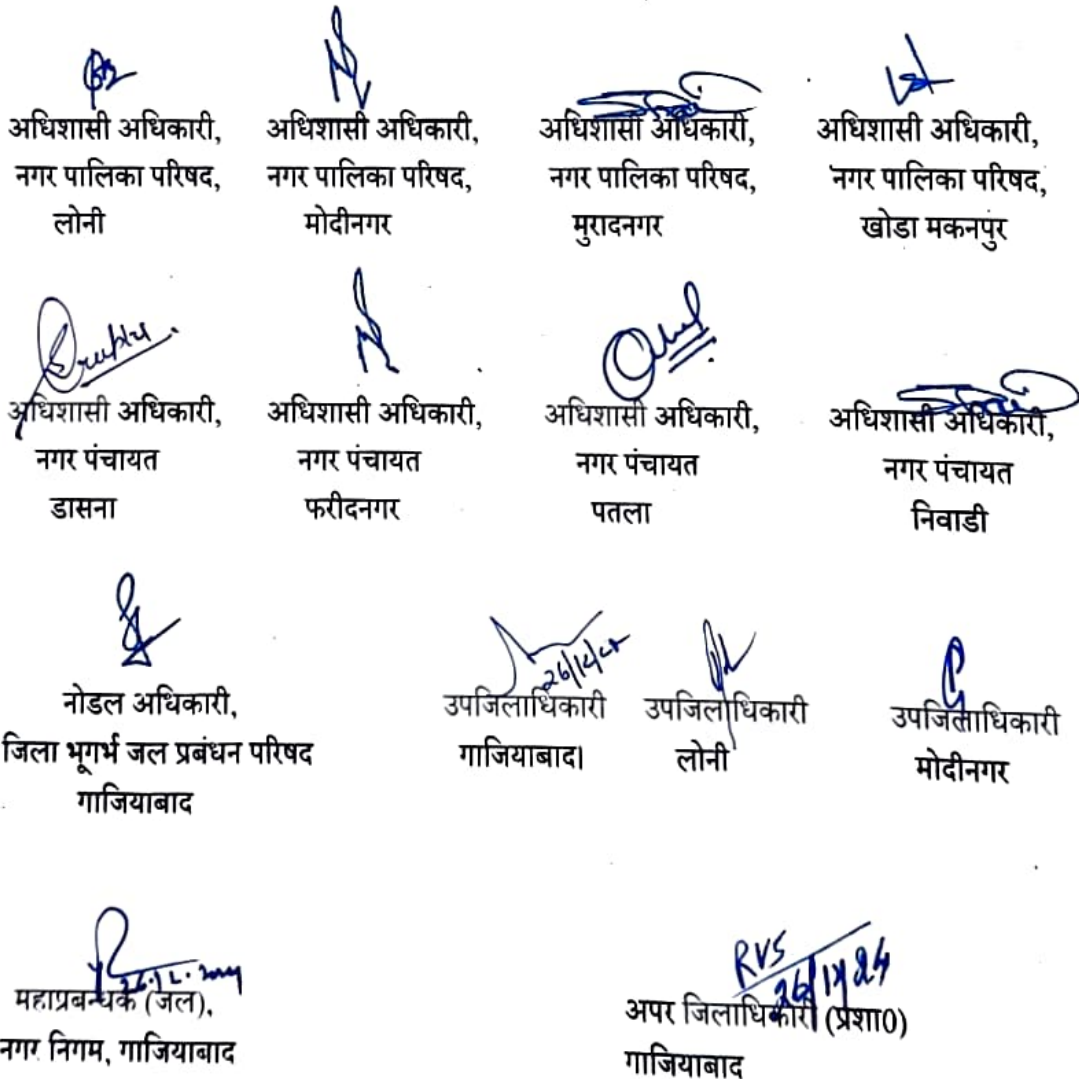 अधिशासी अधिकारी,
नगर पालिका परिषद,
लोनी
अधिशासी अधिकारी,
नगर पालिका परिषद,
मोदीनगर
अधिशासी अधिकारी,
नगर पालिका परिषद,
मुरादनगर
अधिशासी अधिकारी,
नगर पालिका परिषद,
खोडा मकनपुर
अधिशासी अधिकारी,
नगर पंचायत
डासना
अधिशासी अधिकारी,
नगर पंचायत
फरीदनगर
अधिशासी अधिकारी,
नगर पंचायत
पतला
अधिशासी अधिकारी,
नगर पंचायत
निवाडी
नोडल अधिकारी,
जिला भूगर्भ जल प्रबंधन परिषद
गाजियाबाद
उपजिलाधिकारी
गाजियाबाद।
उपजिलाधिकारी
लोनी
उपजिलाधिकारी
मोदीनगर
महाप्रबन्धक (जल),
नगर निगम, गाजियाबाद
RVS
अपर जिलाधिकारी (प्रशा0)
गाजियाबाद